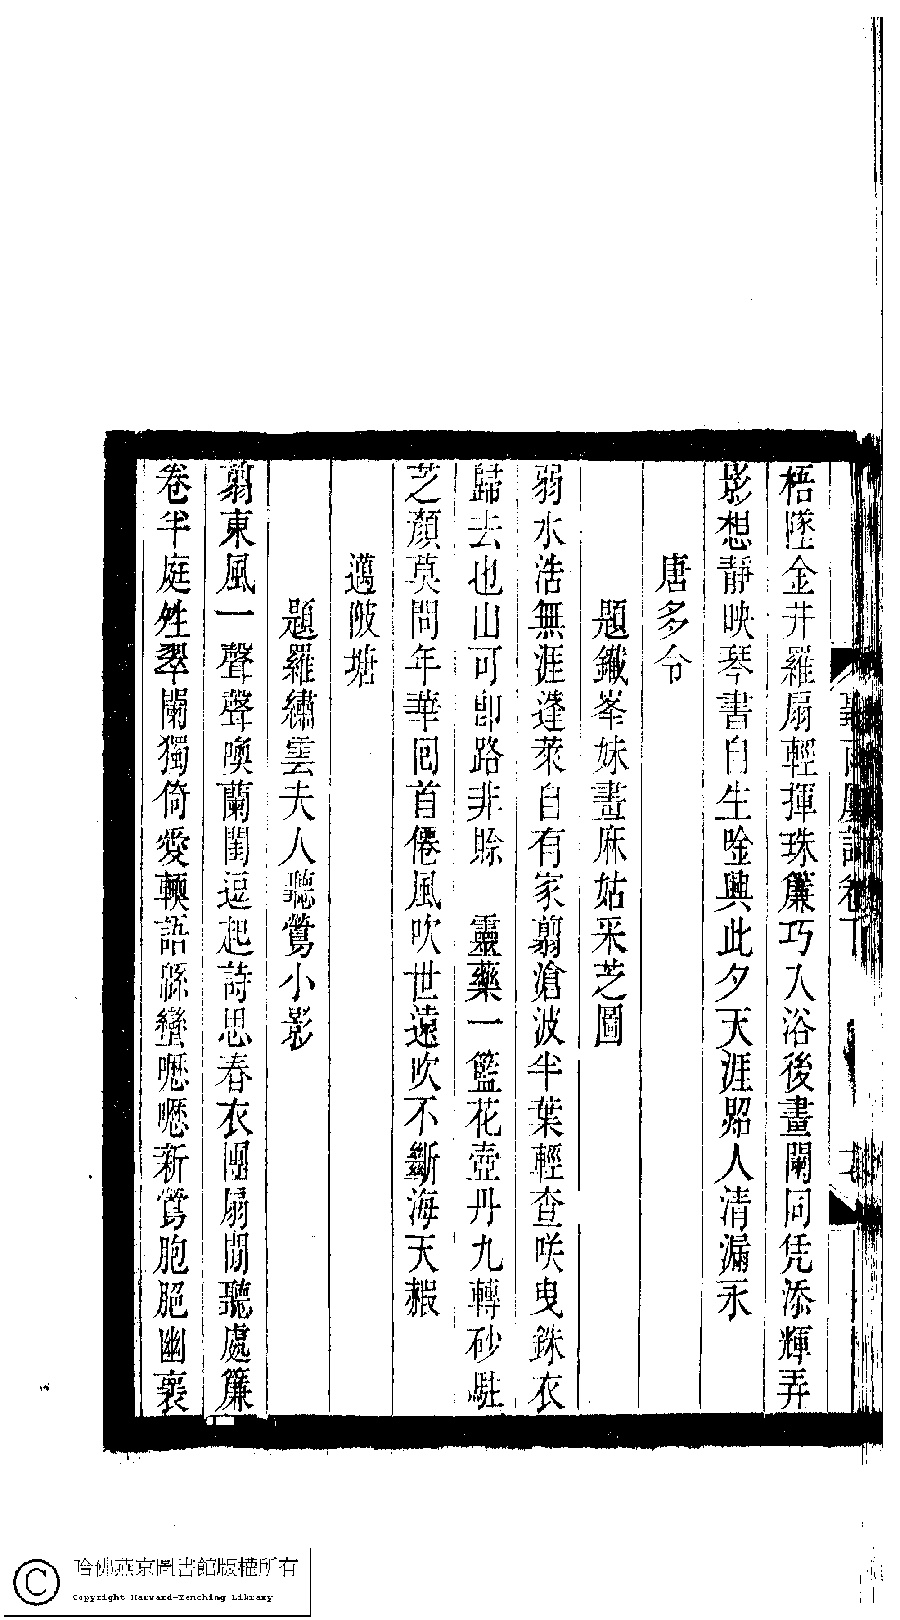 梧墜金井羅扇輕揮珠簾巧入浴後畫闌同凭添輝弄
影想靜映琴書自生唫興此夕天涯照人清漏永
唐多令
題鐵峯妹畫麻姑采芝圖
弱水浩無涯蓬萊自有家翦滄波半葉輕查咲曳銖衣
歸去也山可卽路非賒　靈藥一籃花壺丹九轉砂駐
芝顏莫問年華回首僊風吹世遠吹不斷海天霞
邁陂塘
題羅繡雲夫人聽鶯小影
翦東風一聲聲喚蘭閨逗起詩思春衣團扇閒聽處簾
卷半庭甡翠闌獨倚愛輭語緜蠻嚦嚦新鶯脆肥幽裏
雨 卷下
哈佛燕京圖書館版權所有
Copyright Harvard-Yenching Library